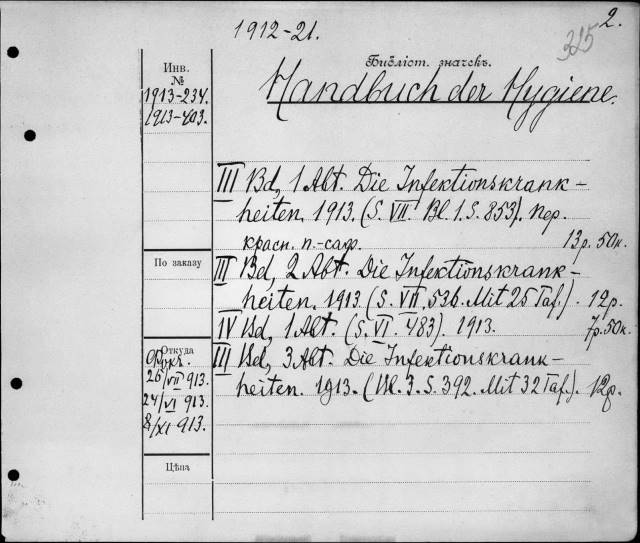 1912-21.
2.
325
Библіот. значекъ.
Handbuch der Hygiene.
Инв.
№
1913-234.
1913-403.
III Bd, 1 Abt. Die Infektionskrank-
heiten. 1913. (S. VII. Bl. 1. S. 853). Пер.
красн. п.-саф. 13р. 50к.
По заказу
III Bd, 2 Abt. Die Infektionskrank-
heiten. 1913. (S. VII, 536. Mit 25 Taf.). 12р.
IV Bd, 1 Abt. (S. VI. 483). 1913. 7р. 50к.
Откуда
III Bd, 3 Abt. Die Infektionskrank-
heiten. 1913. (Bl. 3. S. 392. Mit 32 Taf.). 12р.
26/VII 913.
24/VI 913.
8/XI 913.
Цѣна